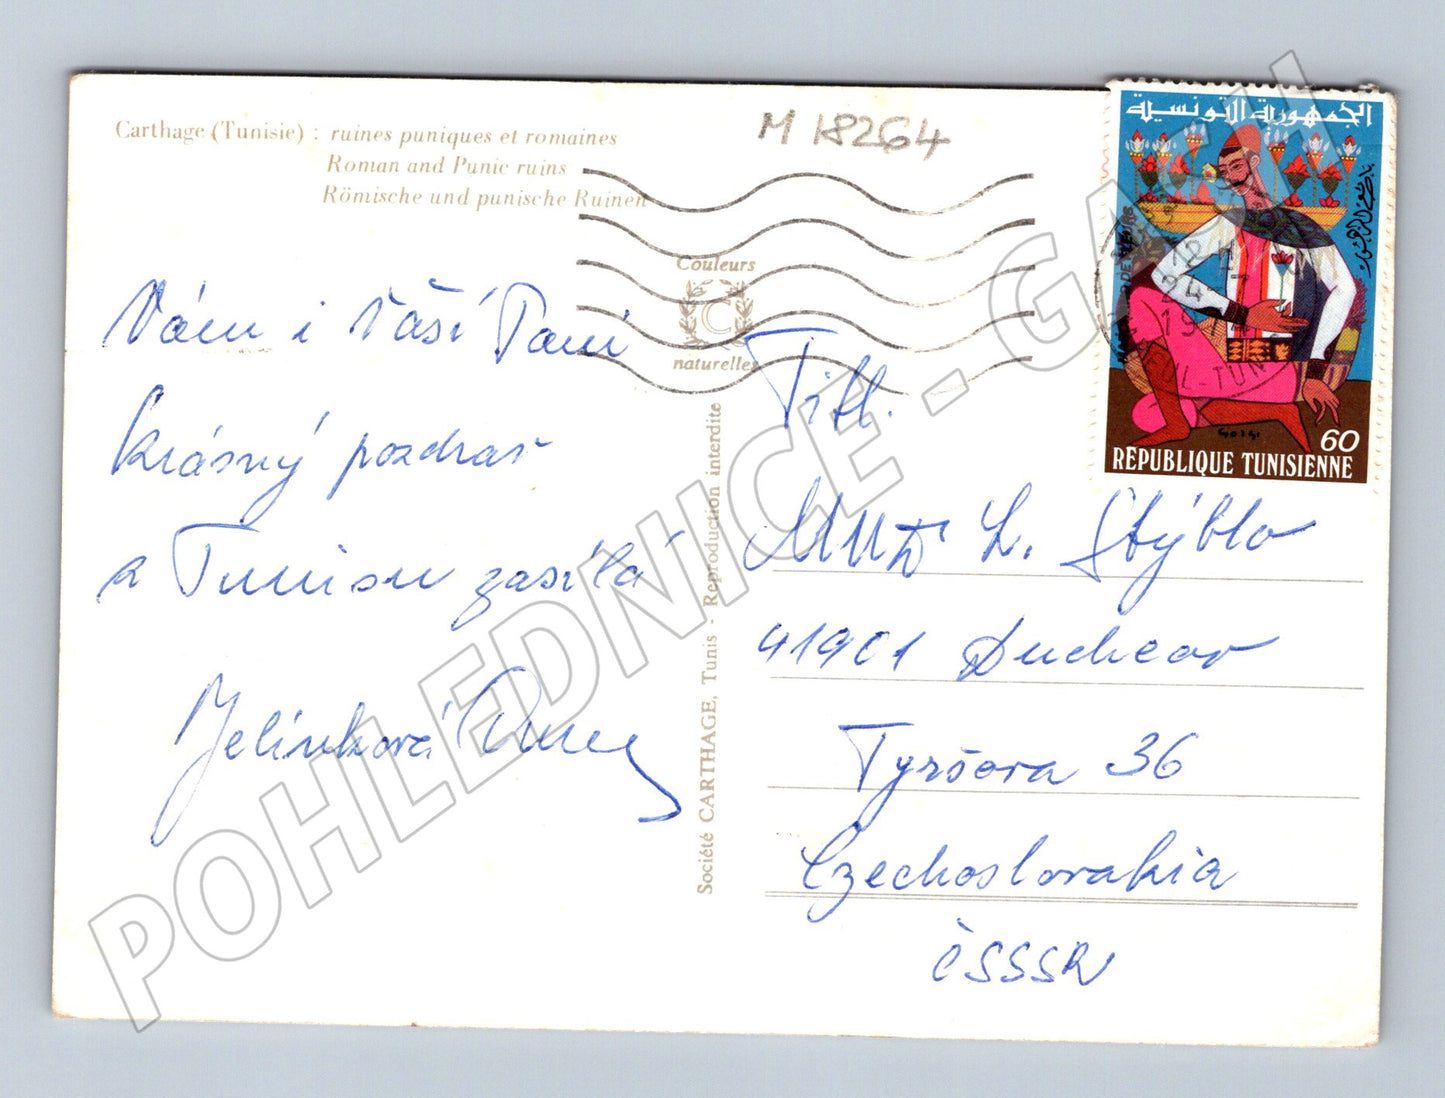 Carthage (Tunisie) : ruines puniques et romaines
Roman and Punic ruins
Römische und punische Ruinen
M 18264
Couleurs
C
naturelles
Vám i Vaší Paní
krásný pozdrav
z Tunisu zasílá
Jelínková
Société CARTHAGE, Tunis - Reproduction interdite
الجمهورية التونسية
60
REPUBLIQUE TUNISIENNE
Titl.
MUDr L. Stýblo
41901 Duchcov
Tyršova 36
Czechoslovakia
ČSSSR
POHLEDNICE - GASH